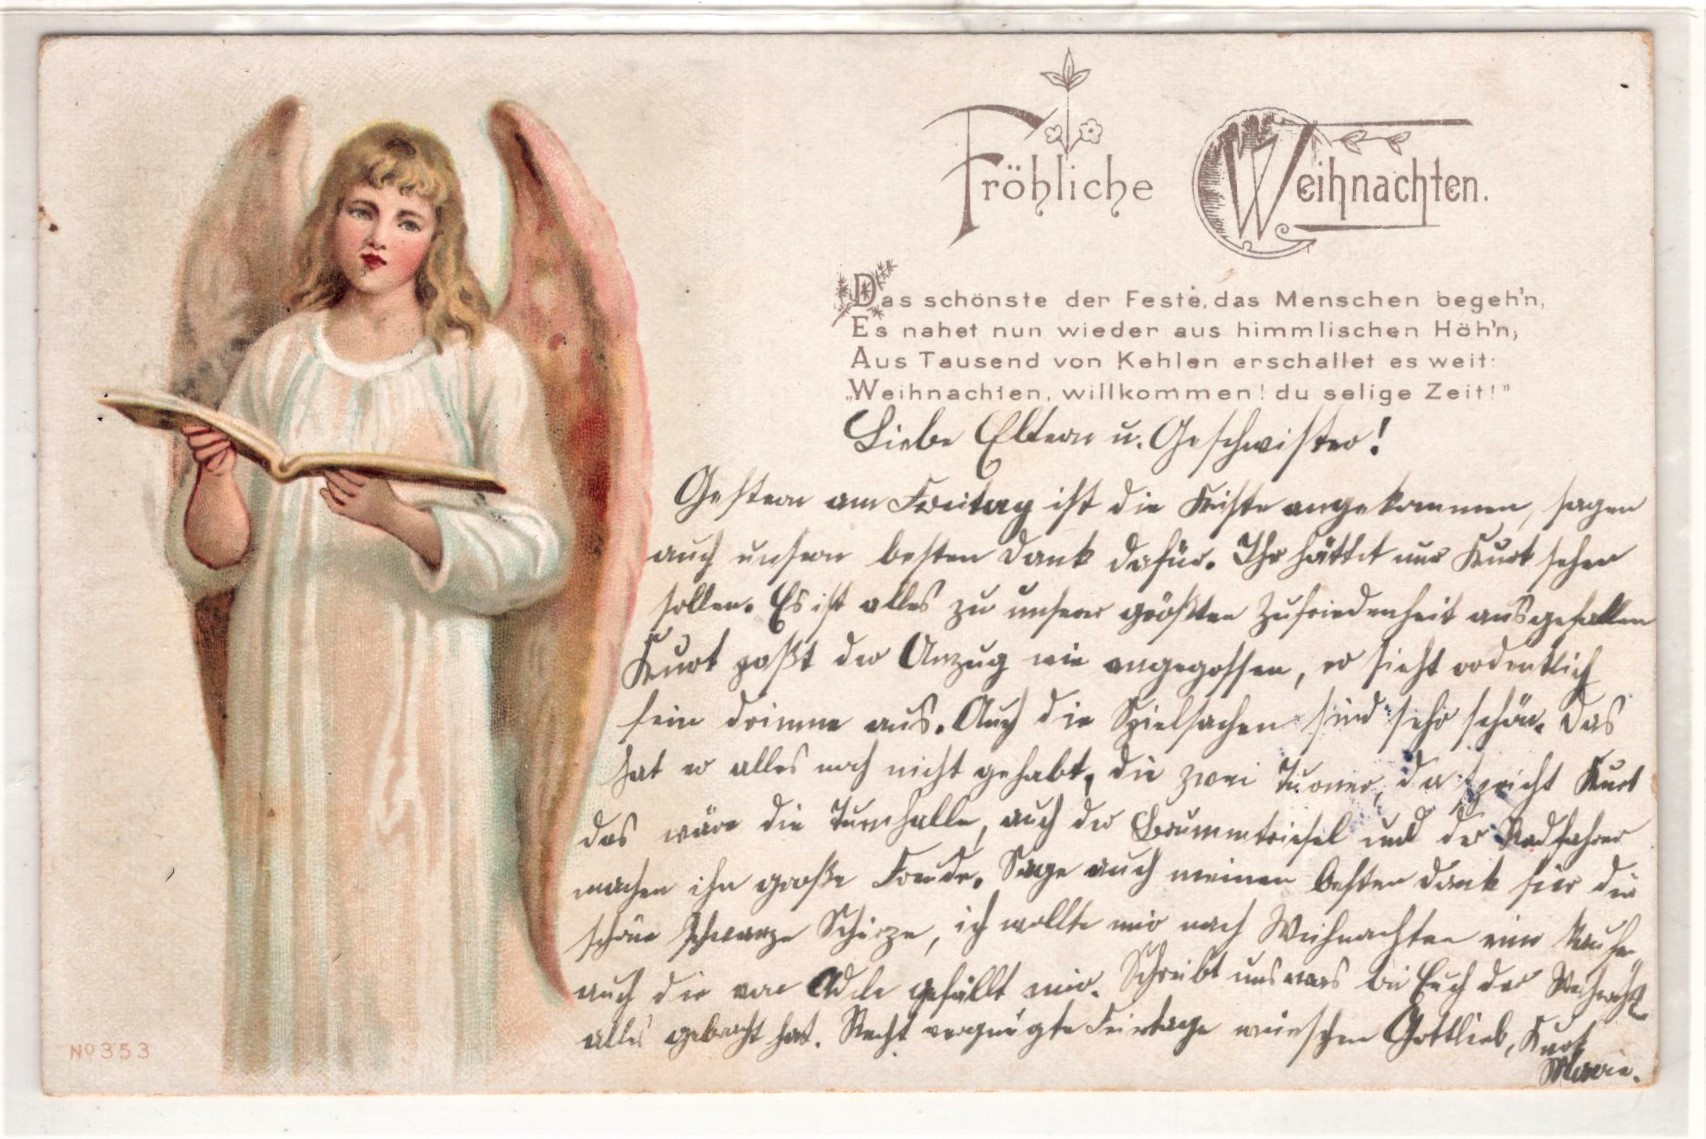 Fröhliche Weihnachten.
Das schönste der Feste, das Menschen begeh'n,
Es nahet nun wieder aus himmlischen Höh'n,
Aus Tausend von Kehlen erschallet es weit:
„Weihnachten, willkommen! du selige Zeit!"
Liebe Eltern u. Geschwister!
Gestern am Freitag ist die Kiste angekommen, sagen
auch unsern besten Dank dafür. Ihr hättet nur Kurt sehen
sollen. Es ist alles zu unserer größten Zufriedenheit ausgefallen
Kurt paßt der Anzug wie angegossen, er sieht ordentlich
fein drinne aus. Auch die Spielsachen sind sehr schön. Das
hat er alles noch nicht gehabt, die zwei Turner, da spricht Kurt
das wäre die Turnhalle, auch der Brummtriesel und der Radfahrer
machen ihn große Freude. Sage auch meinen besten Dank für die
schöne schwarze Schürze, ich wollte mir nach Weihnachten eine kaufen
auch die von Adele gefällt mir. Schreibt uns was bei Euch der
alles gebracht hat. Recht vergnügte Feiertage wünschen Gottlieb, Kurt
Marie.
No 353